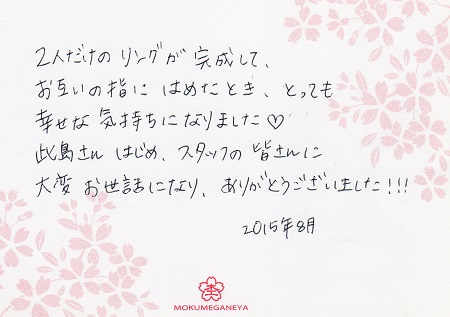 2人だけの リングが 完成して、
お互いの指に はめたとき、とっても
幸せな 気持ちになりました♡
此島さん はじめ、スタッフの 皆さんに
大変 お世話になり、ありがとうございました!!!
2015年8月
MOKUMEGANEYA